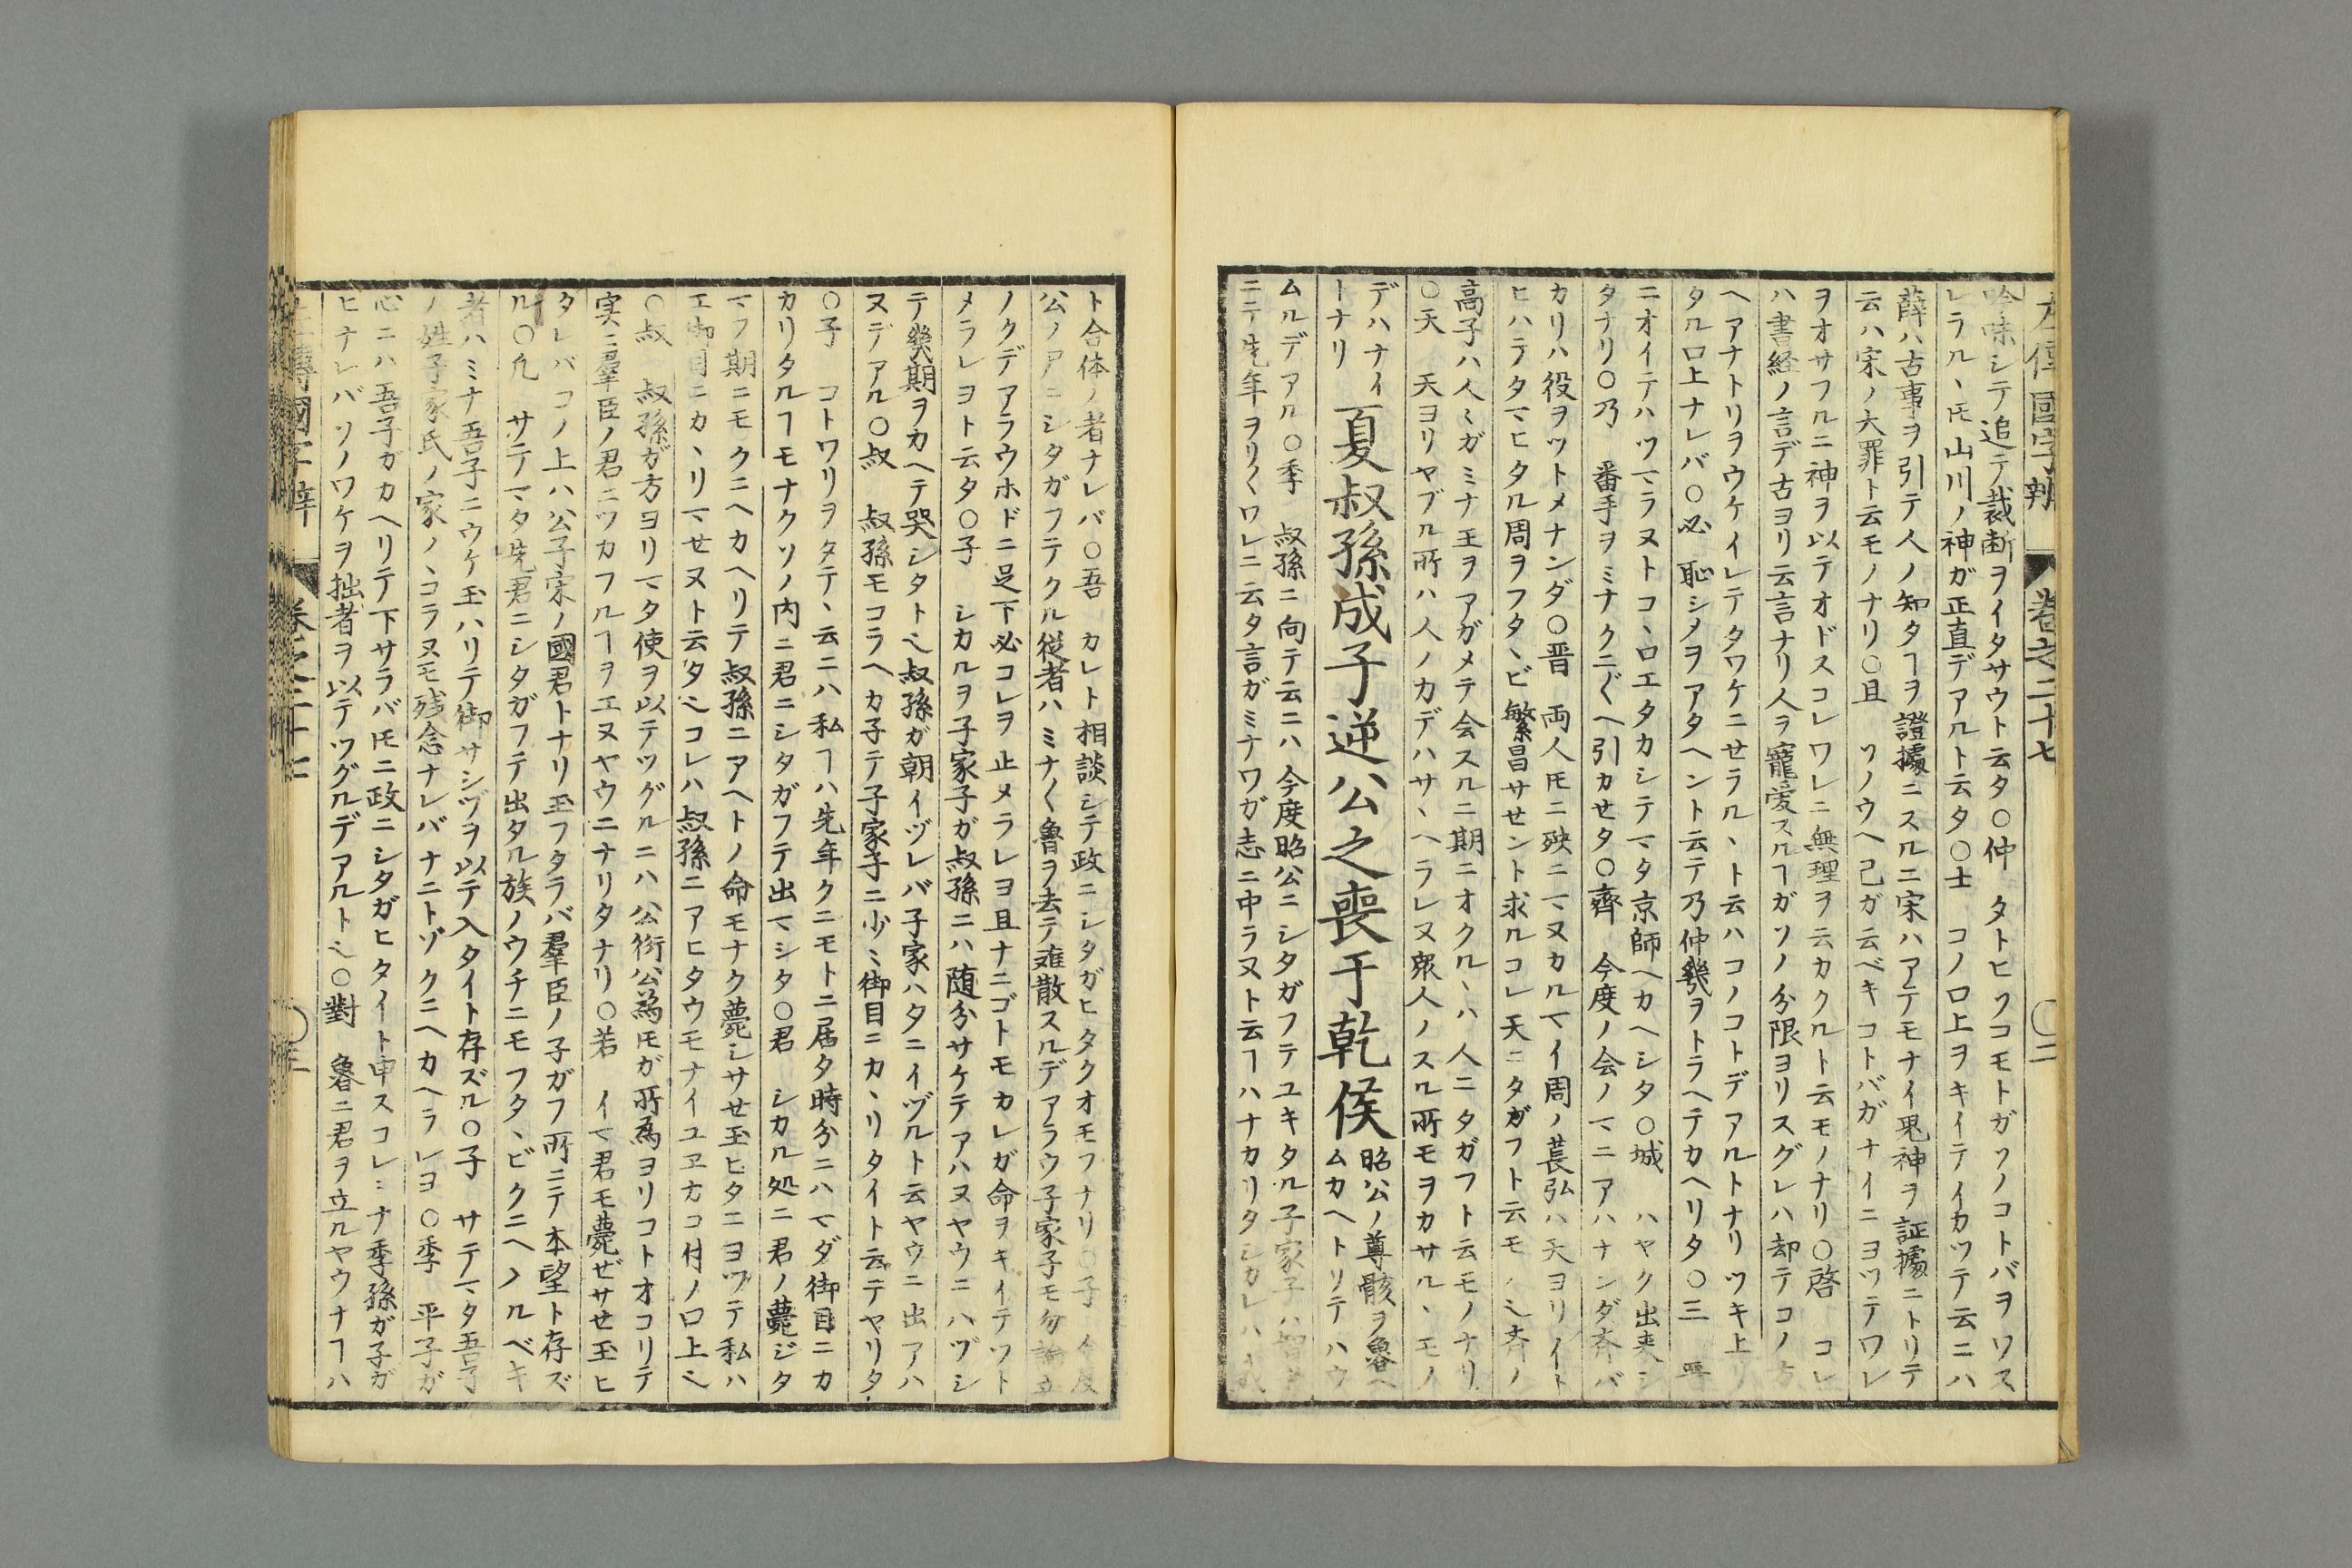 左傳國字辨 卷之二十七 〇二
吟味シテ追テ裁断ヲイタサウト云タ〇仲 タトヒソコモトガソノコトバヲワス
レラルヽ𪜈山川ノ神ガ正直デアルト云タ〇士 コノ口上ヲキイテイカツテ云ニハ
薛ハ古事ヲ引テ人ノ知タヿヲ證據ニスルニ宋ハアテモナイ鬼神ヲ証據ニトリテ
云ハ宋ノ大罪ト云モノナリ〇且 ソノウヘ己ガ云ベキコトバガナイニヨツテワレ
ヲオサフルニ神ヲ以テオドスコレワレニ無理ヲ云カクルト云モノナリ〇啓 コレ
ハ書経ノ言デ古ヨリ云言ナリ人ヲ寵愛スルヿガソノ分限ヨリスグレハ却テコノ方
ヘアナトリヲウケイレテタワケニセラルヽト云ハコノコトデアルトナリツキ上リ
タル口上ナレバ〇必 恥シメヲアタヘント云テ乃仲幾ヲトラヘテカヘリタ〇三
ニオイテハツマラヌトコヽロエタカシテマタ京師ヘカヘシタ〇城 ハヤク出来シ
タナリ〇乃 番手ヲミナクニ〴〵ヘ引カせタ〇齊 今度ノ会ノマニアハナンダ斉バ
カリハ役ヲツトメナンダ〇晋 両人𪜈ニ殃ニマヌカルマイ周ノ萇弘ハ天ヨリイト
ヒハテタマヒタル周ヲフタヽビ繁昌サせント求ルコレ天ニタガフト云モノ也斉ノ
高子ハ人〻ガミナ王ヲアガメテ会スルニ期ニオクルヽハ人ニタガフト云モノナリ
〇天 天ヨリヤブル所ハ人ノカデハサヽヘラレヌ衆人ノスル所モヲカサルヽモノ
デハナイ
トナリ
夏叔孫成子逆公之喪于乾侯
昭公ノ尊骸ヲ魯ヘ
ムカヘトリテハウ
ムルデアル〇季 叔孫ニ向テ云ニハ今度昭公ニシタガフテユキタル子家子ハ
ニテ先年ヲリ〳〵ワレニ云タ言ガミナワガ志ニ中ラヌト云ヿハナカリタシカレハ我
ト合体ノ者ナレバ〇吾 カレト相談シテ政ニシタガヒタクオモフナリ〇子 今度
公ノ尸ニシタガフテクル従者ハミナ〳〵魯ヲ去テ離散スルデアラウ子家子モ勿論立
ノクデアラウホドニ足下必コレヲ止メラレヨ且ナニゴトモカレガ命ヲキイテツト
メラレヨト云タ〇子 シカルヲ子家子ガ叔孫ニハ随分サケテアハヌヤウニハヅシ
テ幾期ヲカヘテ哭シタト也叔孫ガ朝イヅレバ子家ハタニイヅルト云ヤウニ出アハ
ヌデアル〇叔 叔孫モコラヘカ子テ子家子ニ少〻御目ニカヽリタイト云テヤリタ
〇子 コトワリヲタテヽ云ニハ私ヿハ先年クニモトニ居タ時分ニハマダ御目ニカ
カリタルヿモナクソノ内ニ君ニシタガフテ出マシタ〇君 シカル処ニ君ノ薨ジタ
マフ期ニモクニヘカヘリテ叔孫ニアヘトノ命モナク薨シサせ玉ヒタニヨツテ私ハ
エ御目ニカヽリマせヌト云タ也コレハ叔孫ニアヒタウモナイユヱカコ付ノ口上也
〇叔 叔孫ガ方ヨリマタ使ヲ以テツグルニハ公衍公爲𪜈ガ所爲ヨリコトオコリテ
実ニ羣臣ノ君ニツカフルヿヲエヌヤウニナリタナリ〇若 イマ君モ薨ぜサせ玉ヒ
タレバコノ上ハ公子宋ノ國君トナリ玉フタラバ羣臣ノ子ガフ所ニテ本望ト存ズ
ル〇凡 サテマタ先君ニシタガフテ出タル族ノウチニモフタヽビクニヘノルベキ
者ハミナ吾子ニウケ玉ハリテ御サシヅヲ以テ入タイト存ズル〇子 サテマタ吾子
ノ姓子家氏ノ家ノヽコラヌモ残念ナレバナニトゾクニヘカヘラレヨ〇季 平子ガ
心ニハ吾子ガカヘリテ下サラバ𪜈ニ政ニシタガヒタイト申スコレミナ季孫ガ子ガ
ヒナレバソノワケヲ拙者ヲ以テツグルデアルト也〇對 魯ニ君ヲ立ルヤウナヿハ